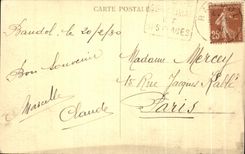 CARTE POSTALE
Bandol, le 20/2/30
Bon Souvenir
Marcelle
Claude
Madame Mercey
Rue Jacques
Paris
25